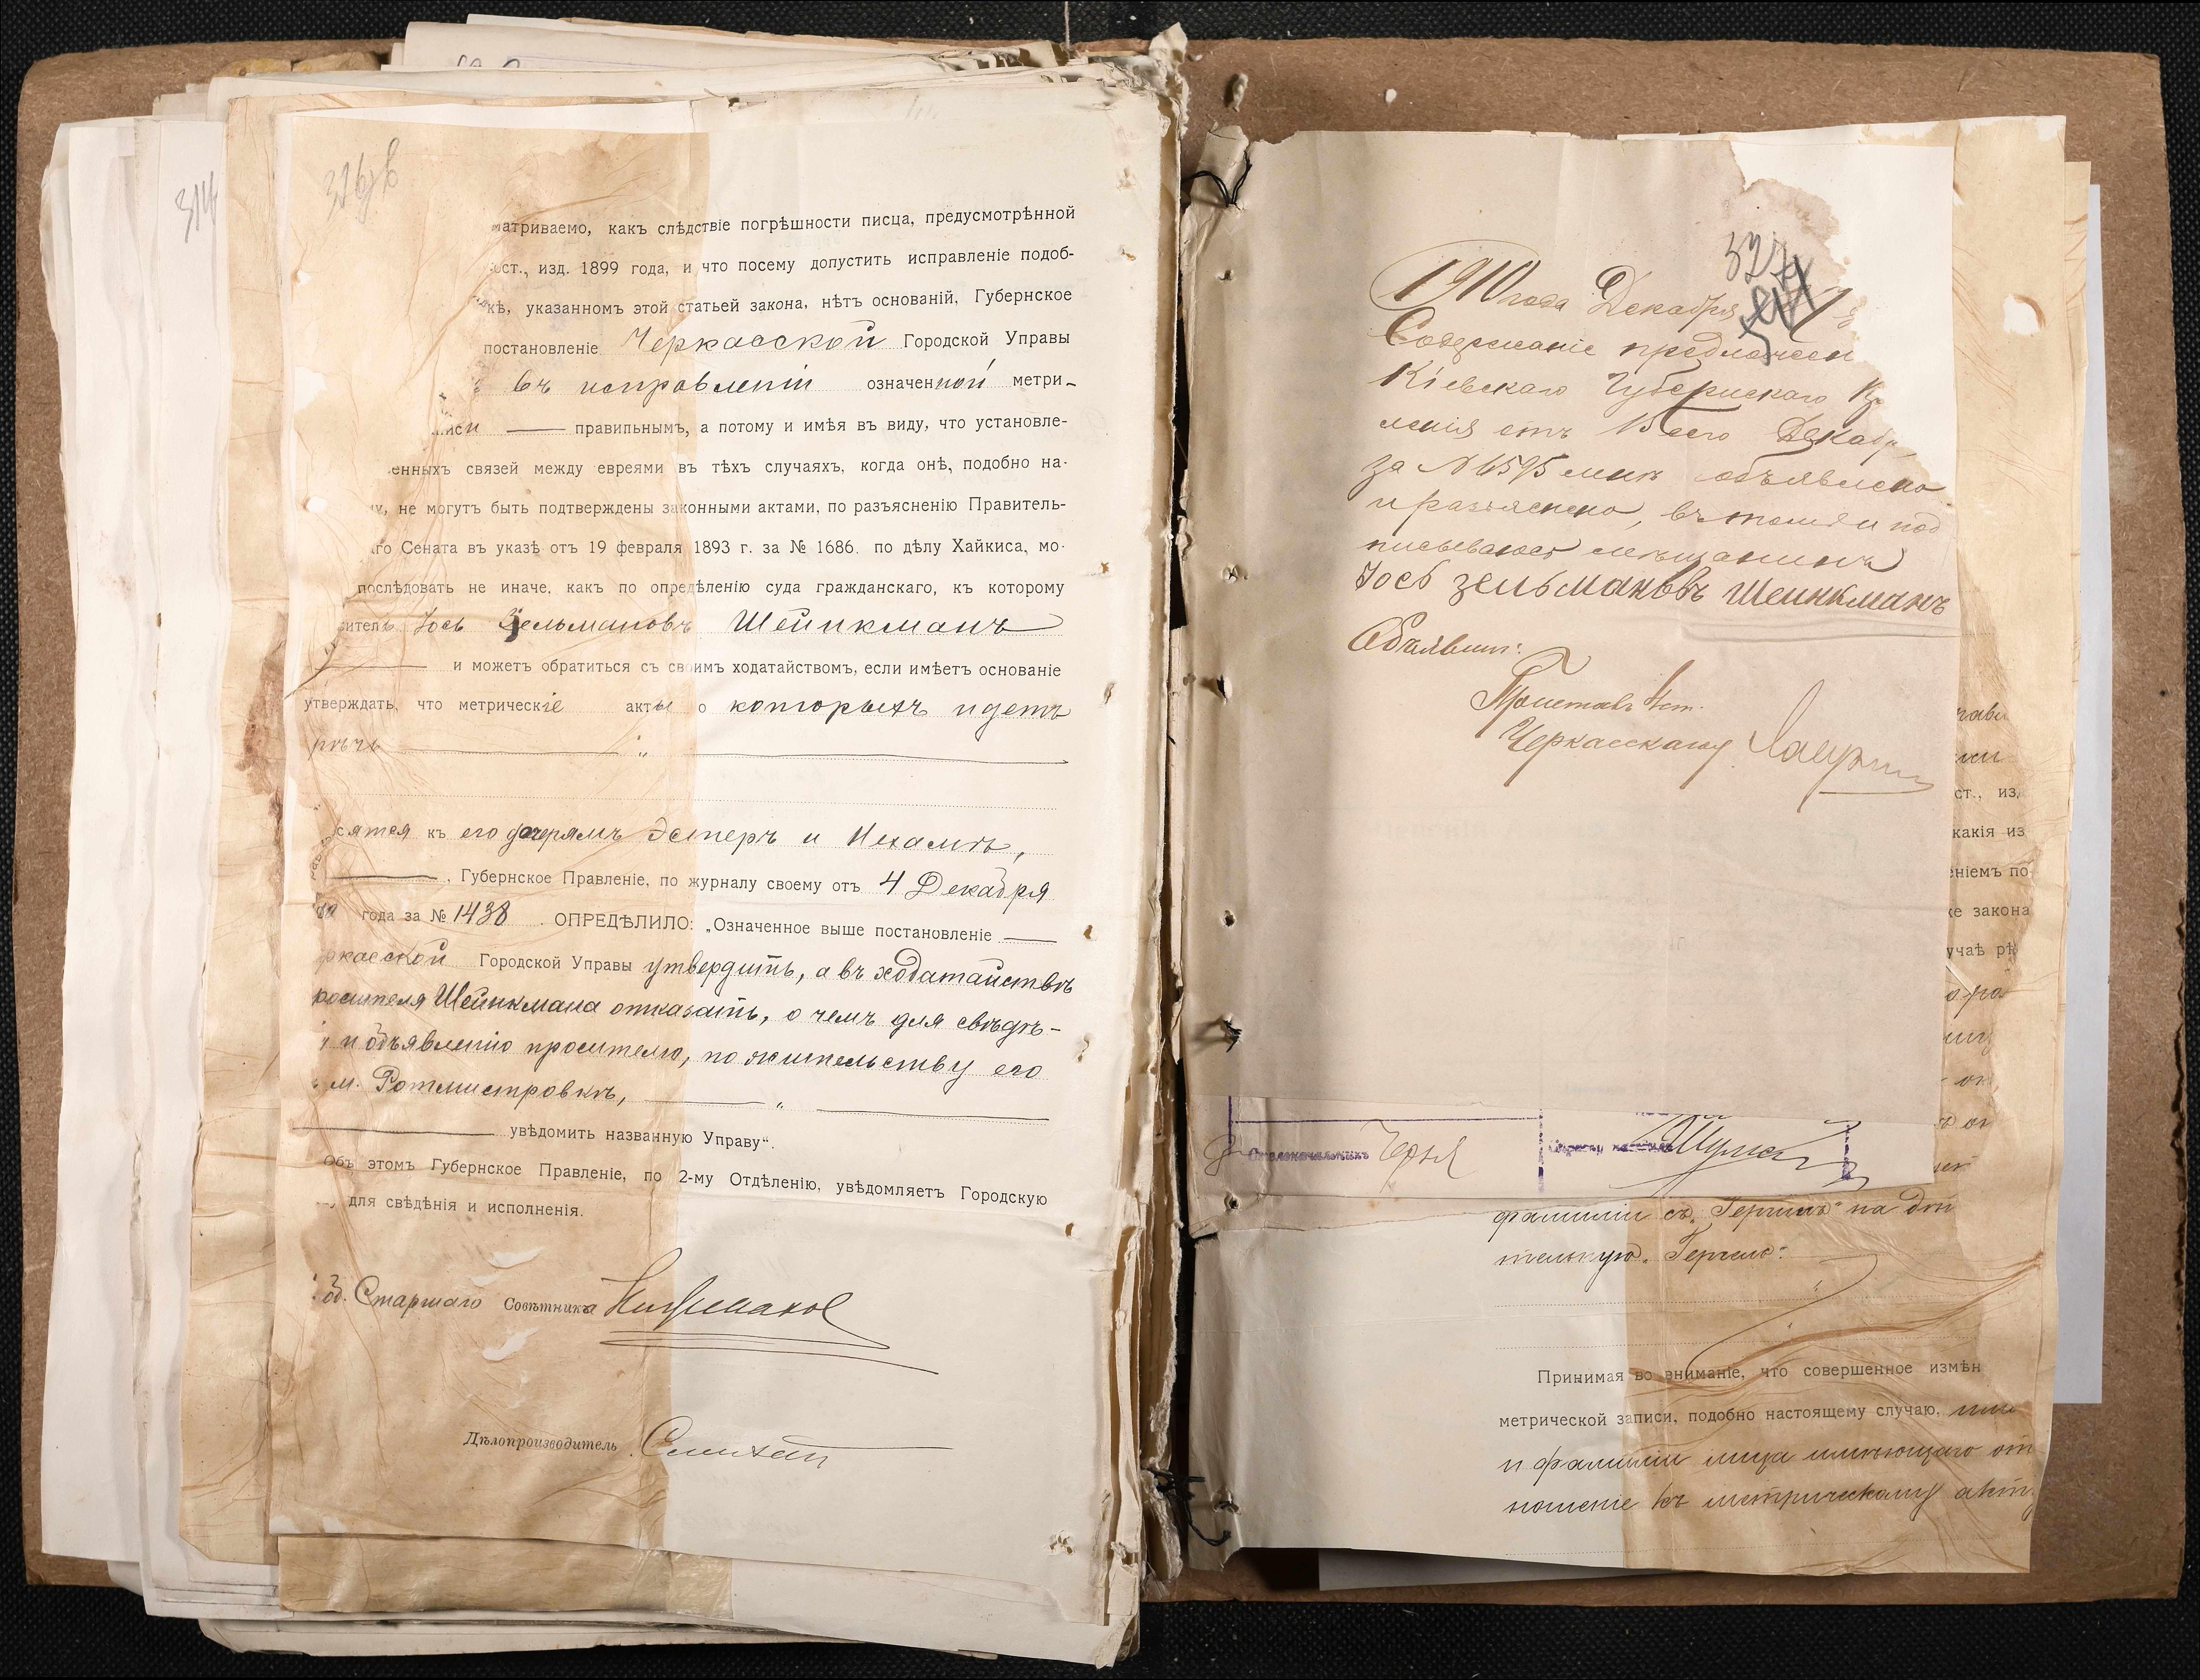 матриваемо, какъ слѣдствіе погрѣшности писца, предусмотрѣнной
ст., изд. 1899 года, и что посему допустить исправленіе подоб-
кѣ, указанномъ этой статьей закона, нѣтъ основаній, Губернское
постановленіе Черкасской Городской Управы
въ исправленіи означенной метри-
иси — правильнымъ, а потому и имѣя въ виду, что установле-
енныхъ связей между евреями въ тѣхъ случаяхъ, когда онѣ, подобно на-
не могутъ быть подтверждены законными актами, по разъясненію Правитель-
го Сената въ указѣ отъ 19 февраля 1893 г. за № 1686. по дѣлу Хайкиса, мо-
послѣдовать не иначе, какъ по опредѣленію суда гражданскаго, къ которому
ситель Іось Зельмановъ Шейнкманъ
и можетъ обратиться съ своимъ ходатайствомъ, если имѣетъ основаніе
утверждать, что метрическіе акты о которыхъ идетъ
рѣчь — „ —
сятся къ его дочерямъ Эстеръ и Нехамѣ,
— , Губернское Правленіе, по журналу своему отъ 4 Декабря
года за № 1438 . ОПРЕДѢЛИЛО: „Означенное выше постановленіе —
ркасской Городской Управы утвердить, а въ ходатайствѣ
росителя Шейнкмана отказать, о чемъ для свѣдѣ-
и объявленію просителю, по жительству его
м. Ротмистровкѣ, — „ —
— увѣдомить названную Управу“.
Объ этомъ Губернское Правленіе, по 2-му Отдѣленію, увѣдомляетъ Городскую
для свѣдѣнія и исполненія.
Старшаго Совѣтника
Дѣлопроизводитель
314
327
1910 года Декабря
Содержаніе предложен
Кіевскаго Губернскаго
ленія отъ 15 сего Декаб
за № 6595 мнѣ объявлено
и разъяснено, въ томъ и под
писываюсь мѣщанинъ
Іось Зельмановъ Шеинкманъ
Объявилъ:
Приставъ 4 ст.
Черкасскаго у.
Столоначальникъ
фамиліи съ „Герчикъ“ на
тельную
Принимая во вниманіе, что совершенное измѣн
метрической записи, подобно настоящему случаю,
и фамиліи лица имѣющаго от
ношеніе къ метрическому акту
ст., из
какія из
ніемъ по
же закона
учаѣ рѣ